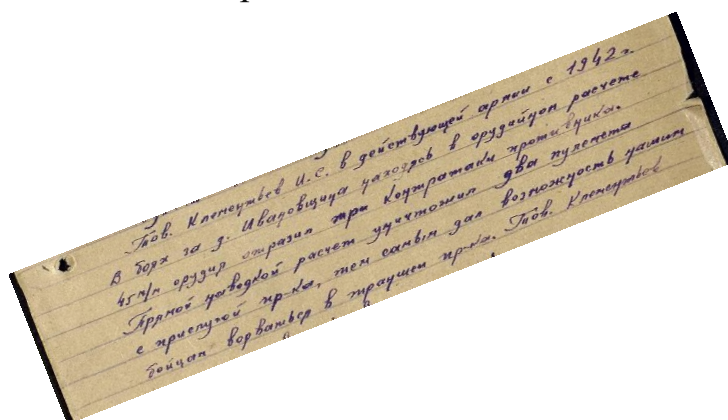 Тов. Клементьев И.С. в действующей армии с 1942 г.
В боях за д. Иваровщина находясь в орудийном расчете
45 м/м орудия отразил три контратаки противника.
Прямой наводкой расчет уничтожил два пулемета
с прислугой пр-ка, тем самым дал возможность нашим
бойцам ворваться в траншеи пр-ка. Тов. Клементьев